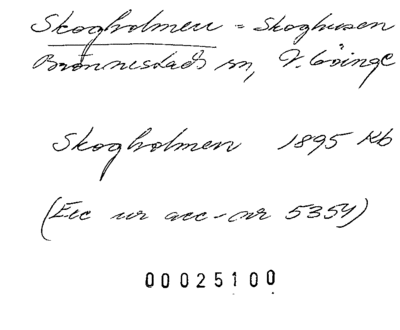 Skogholmen = Skoghusen
Brönnestads sn, V. Göinge
Skogholmen 1895 Kb
(Exc ur acc-nr 5354)
00025100